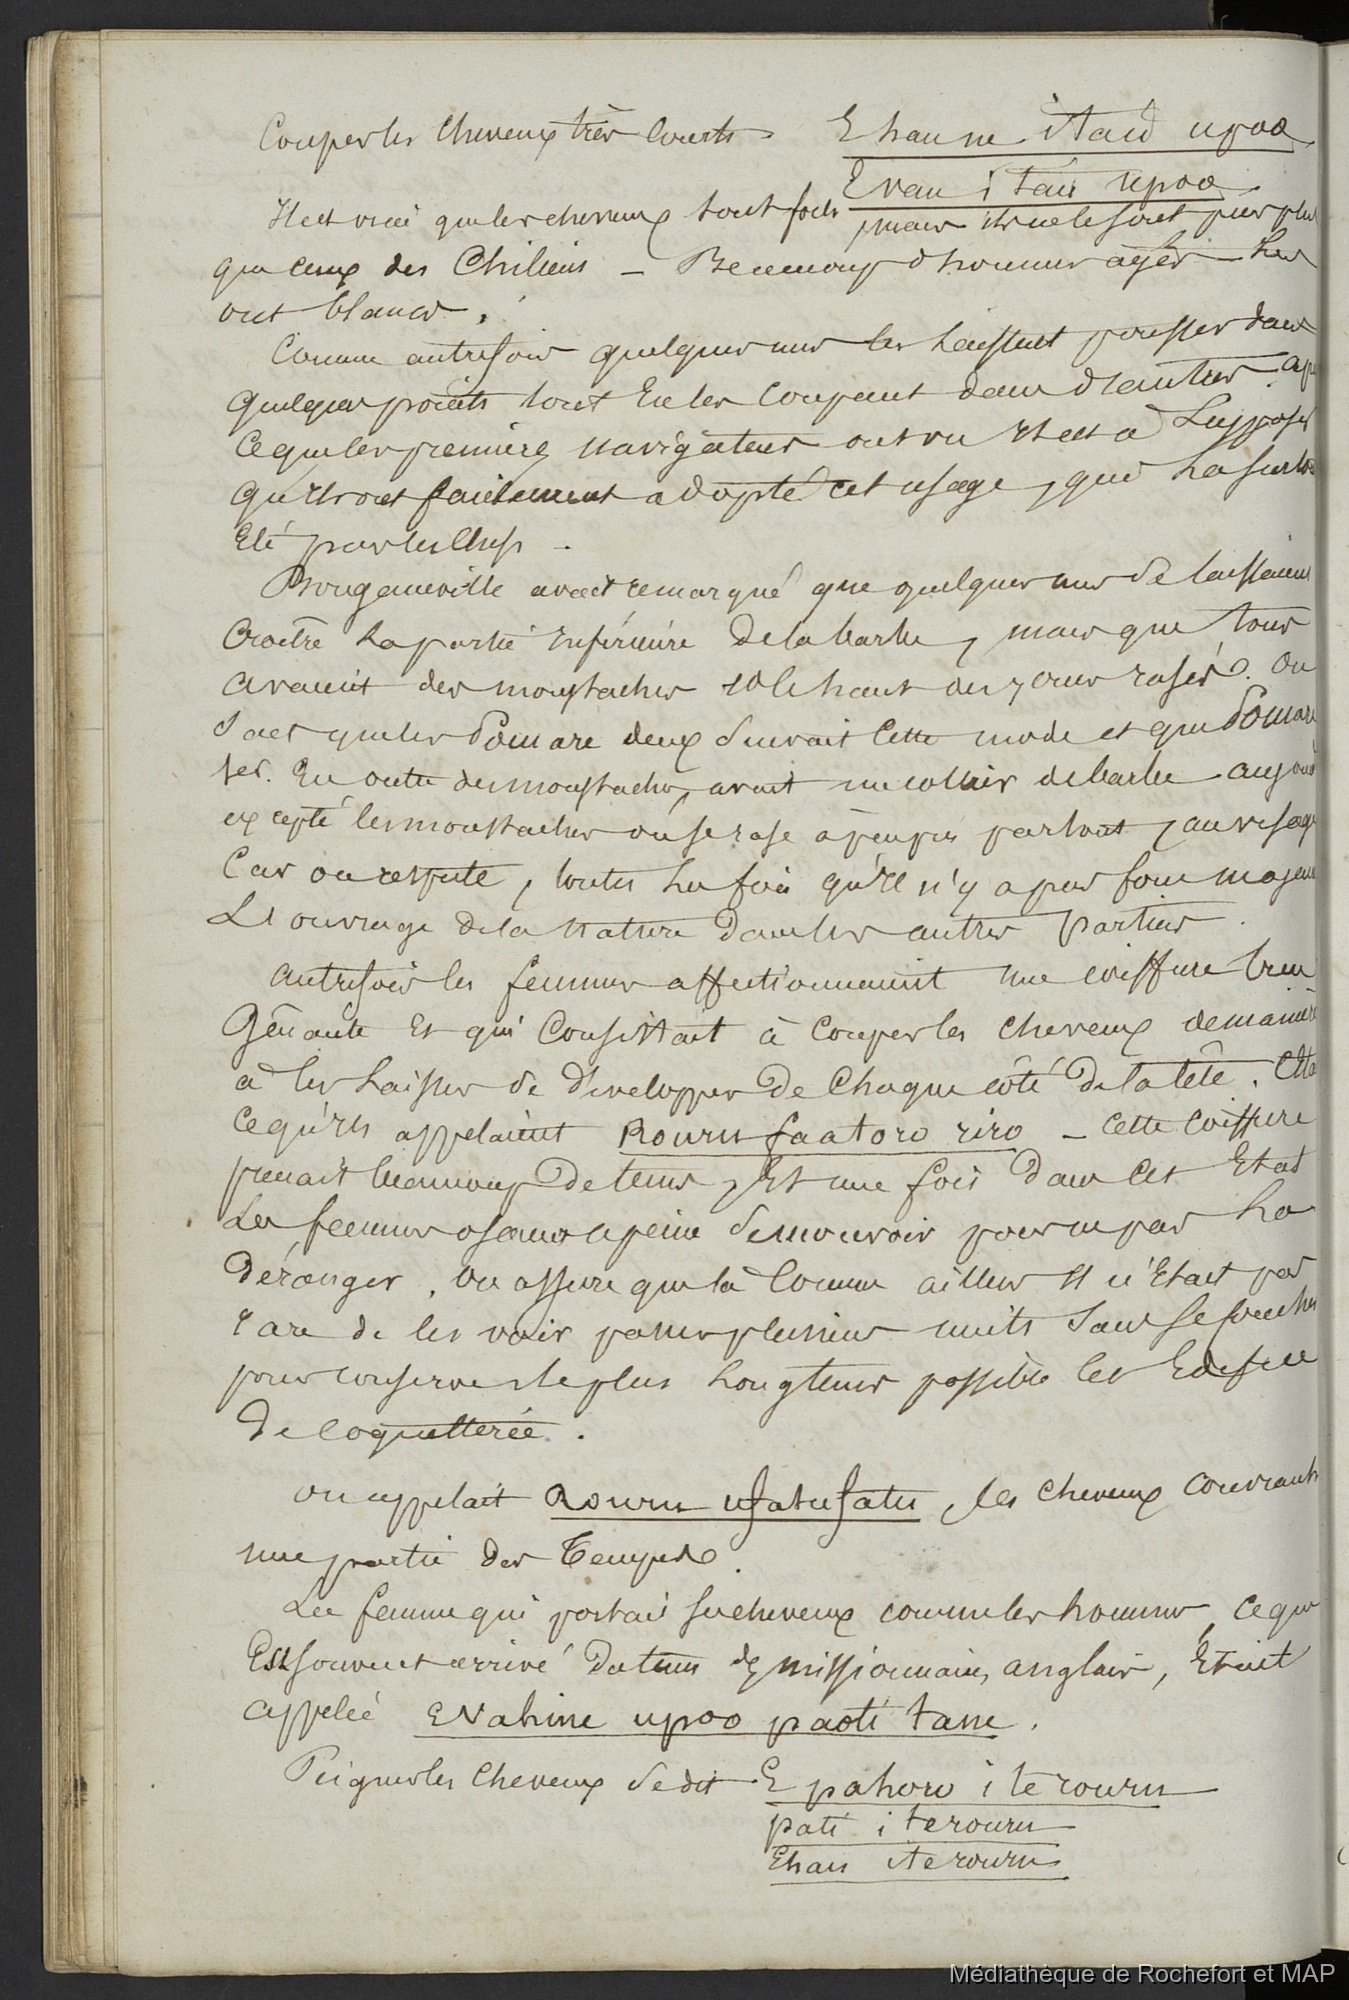 Couper les cheveux très courts - E hau ne i taü upoo
E vau i taü upoo
Il est vrai que les cheveux sont fins, mais ils ne le sont pas plus
que ceux des Chiliens — Beaucoup d'hommes âgés les
ont blancs.
Comme autrefois quelques uns les laissent pousser dans
quelques points tout en les coupant dans d'autres. après
ce que les premiers navigateurs ont vu il est à supposer
qu'ils ont facilement adopté cet usage, que
été par les chefs -
Bougainville avait remarqué que quelques uns se laissaient
croître la partie inférieure de la barbe, mais que tous
avaient des moustaches et le haut des joues rasés. On
sait que les Pomare deux suivait cette mode et que Pomare
1er. En outre des moustaches, avait un collier de barbe aujourd
excepté les moustaches on se rase à peu près partout, au visage
Car on respecte, toutes les fois qu'il n'y a pas force majeure
L'ouvrage de la nature dans les autres parties.
autrefois les femmes affectionnaient une coiffure bien
Gênante Et qui Consistait à Couper les cheveux de manière
à les laisser se développer de chaque côté de la tête. C'était
ce qu'ils appelaient Rourou faatoro riro - cette coiffure
prenait beaucoup de tems, Et une fois dans cet Etat
Les femmes osaient à peine se mouvoir pour ne pas la
déranger. On assure que là comme ailleurs il n'était pas
rare de les voir passer plusieurs nuits sans se coucher
pour conserver le plus longtems possible cet Edifice
de coquetterie.
on appelait Rourou ufatufatu, les cheveux couvrants
une partie des tempes.
La femme qui portait ses cheveux comme les hommes, ce qui
Est souvent arrivé du tems des missionnaires anglais, Etait
appelée E Vahine upoo paoti tane.
Peigner les cheveux se dit E pahoro i te rourou
pati i te rourou
Ehau i te rourou
Médiathèque de Rochefort et MAP